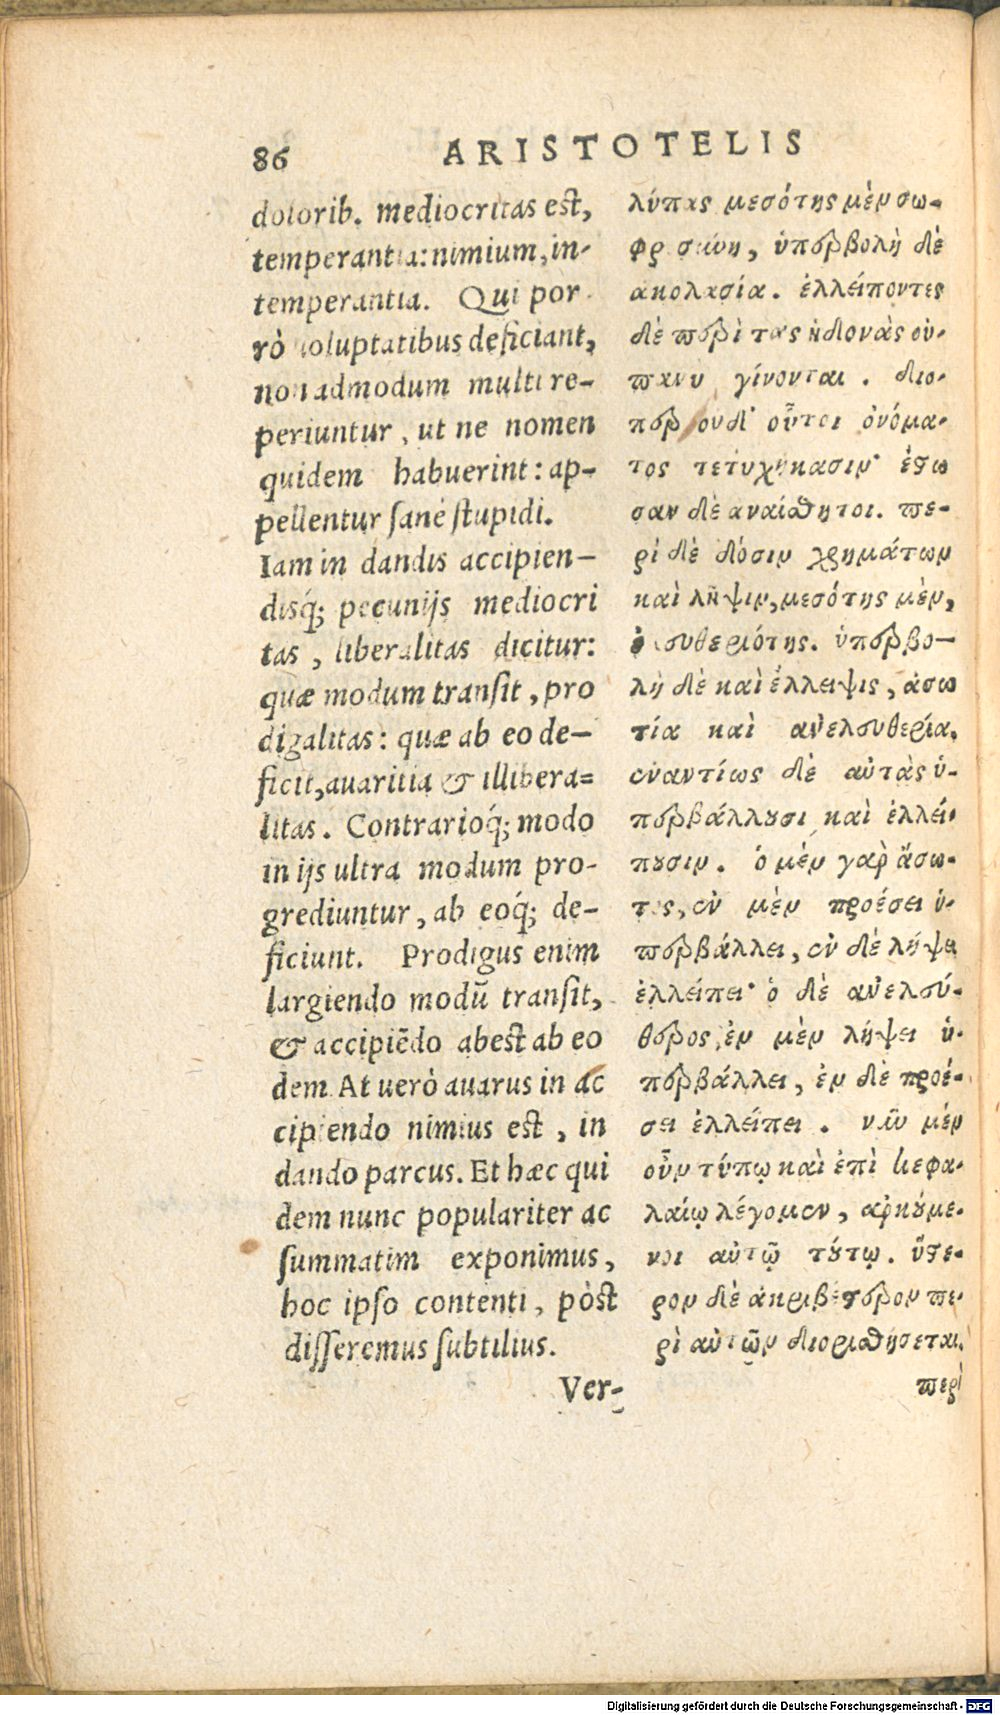 86 ARISTOTELIS
dolorib. mediocritas est,
temperantia: nimium, in-
temperantia. Qui por
rò uoluptatibus deficiant,
non admodum multi re-
periuntur, ut ne nomen
quidem habuerint: ap-
pellentur sanè stupidi.
Iam in dandis accipien-
disq́; pecunijs mediocri
tas, liberalitas dicitur:
quæ modum transit, pro
digalitas: quæ ab eo de-
ficit, auaritia & illibera=
litas. Contrarioq́; modo
in ijs ultra modum pro-
grediuntur, ab eoq́; de-
ficiunt. Prodigus enim
largiendo modū transit,
& accipiēdo abest ab eo
dem. At uerò auarus in ac
cipiendo nimius est, in
dando parcus. Et hæc qui
dem nunc populariter ac
summatim exponimus,
hoc ipso contenti, pòst
disseremus subtilius.
Ver-
λύπας μεσότης μὲν σω-
φροσύνη, ὑπερβολὴ δὲ
ακολασία. ἐλλείποντες
δὲ περὶ τας ἡδονὰς οὐ-
πανυ γίνονται. διο-
περ ουδ' οὗτοι ὀνόμα-
τος τετυχήκασιν· ἐστω
σαν δὲ αναίσθητοι. πε-
ρὶ δὲ δόσιν χρημάτων
καὶ λῆψιν, μεσότης μὲν,
ἐλευθεριότης. ὑπερβο-
λὴ δὲ καὶ ἔλλειψις, ἀσω
τία καὶ ανελευθερία.
ἐναντίως δὲ αὑτὰς ὑ-
περβάλλουσι καὶ ἐλλεί-
πουσιν. ὁ μὲν γαρ ἄσω-
τος, ἐν μὲν προέσει ὑ-
περβάλλει, ἐν δὲ λήψει
ἐλλείπει· ὁ δὲ ανελεύ-
θερος, ἐν μὲν λήψει ὑ-
περβάλλει, ἐν δὲ προέ-
σει ἐλλείπει. νῦν μὲν
οὖν τύπῳ καὶ ἐπὶ κεφα-
λαίῳ λέγομεν, αρκούμε-
νοι αὐτῷ τούτῳ. ὕστε-
ρον δὲ ἀκριβέστερον πε-
ρὶ αὐτῶν διορισθήσεται.
περὶ
Digitalisierung gefördert durch die Deutsche Forschungsgemeinschaft - DFG